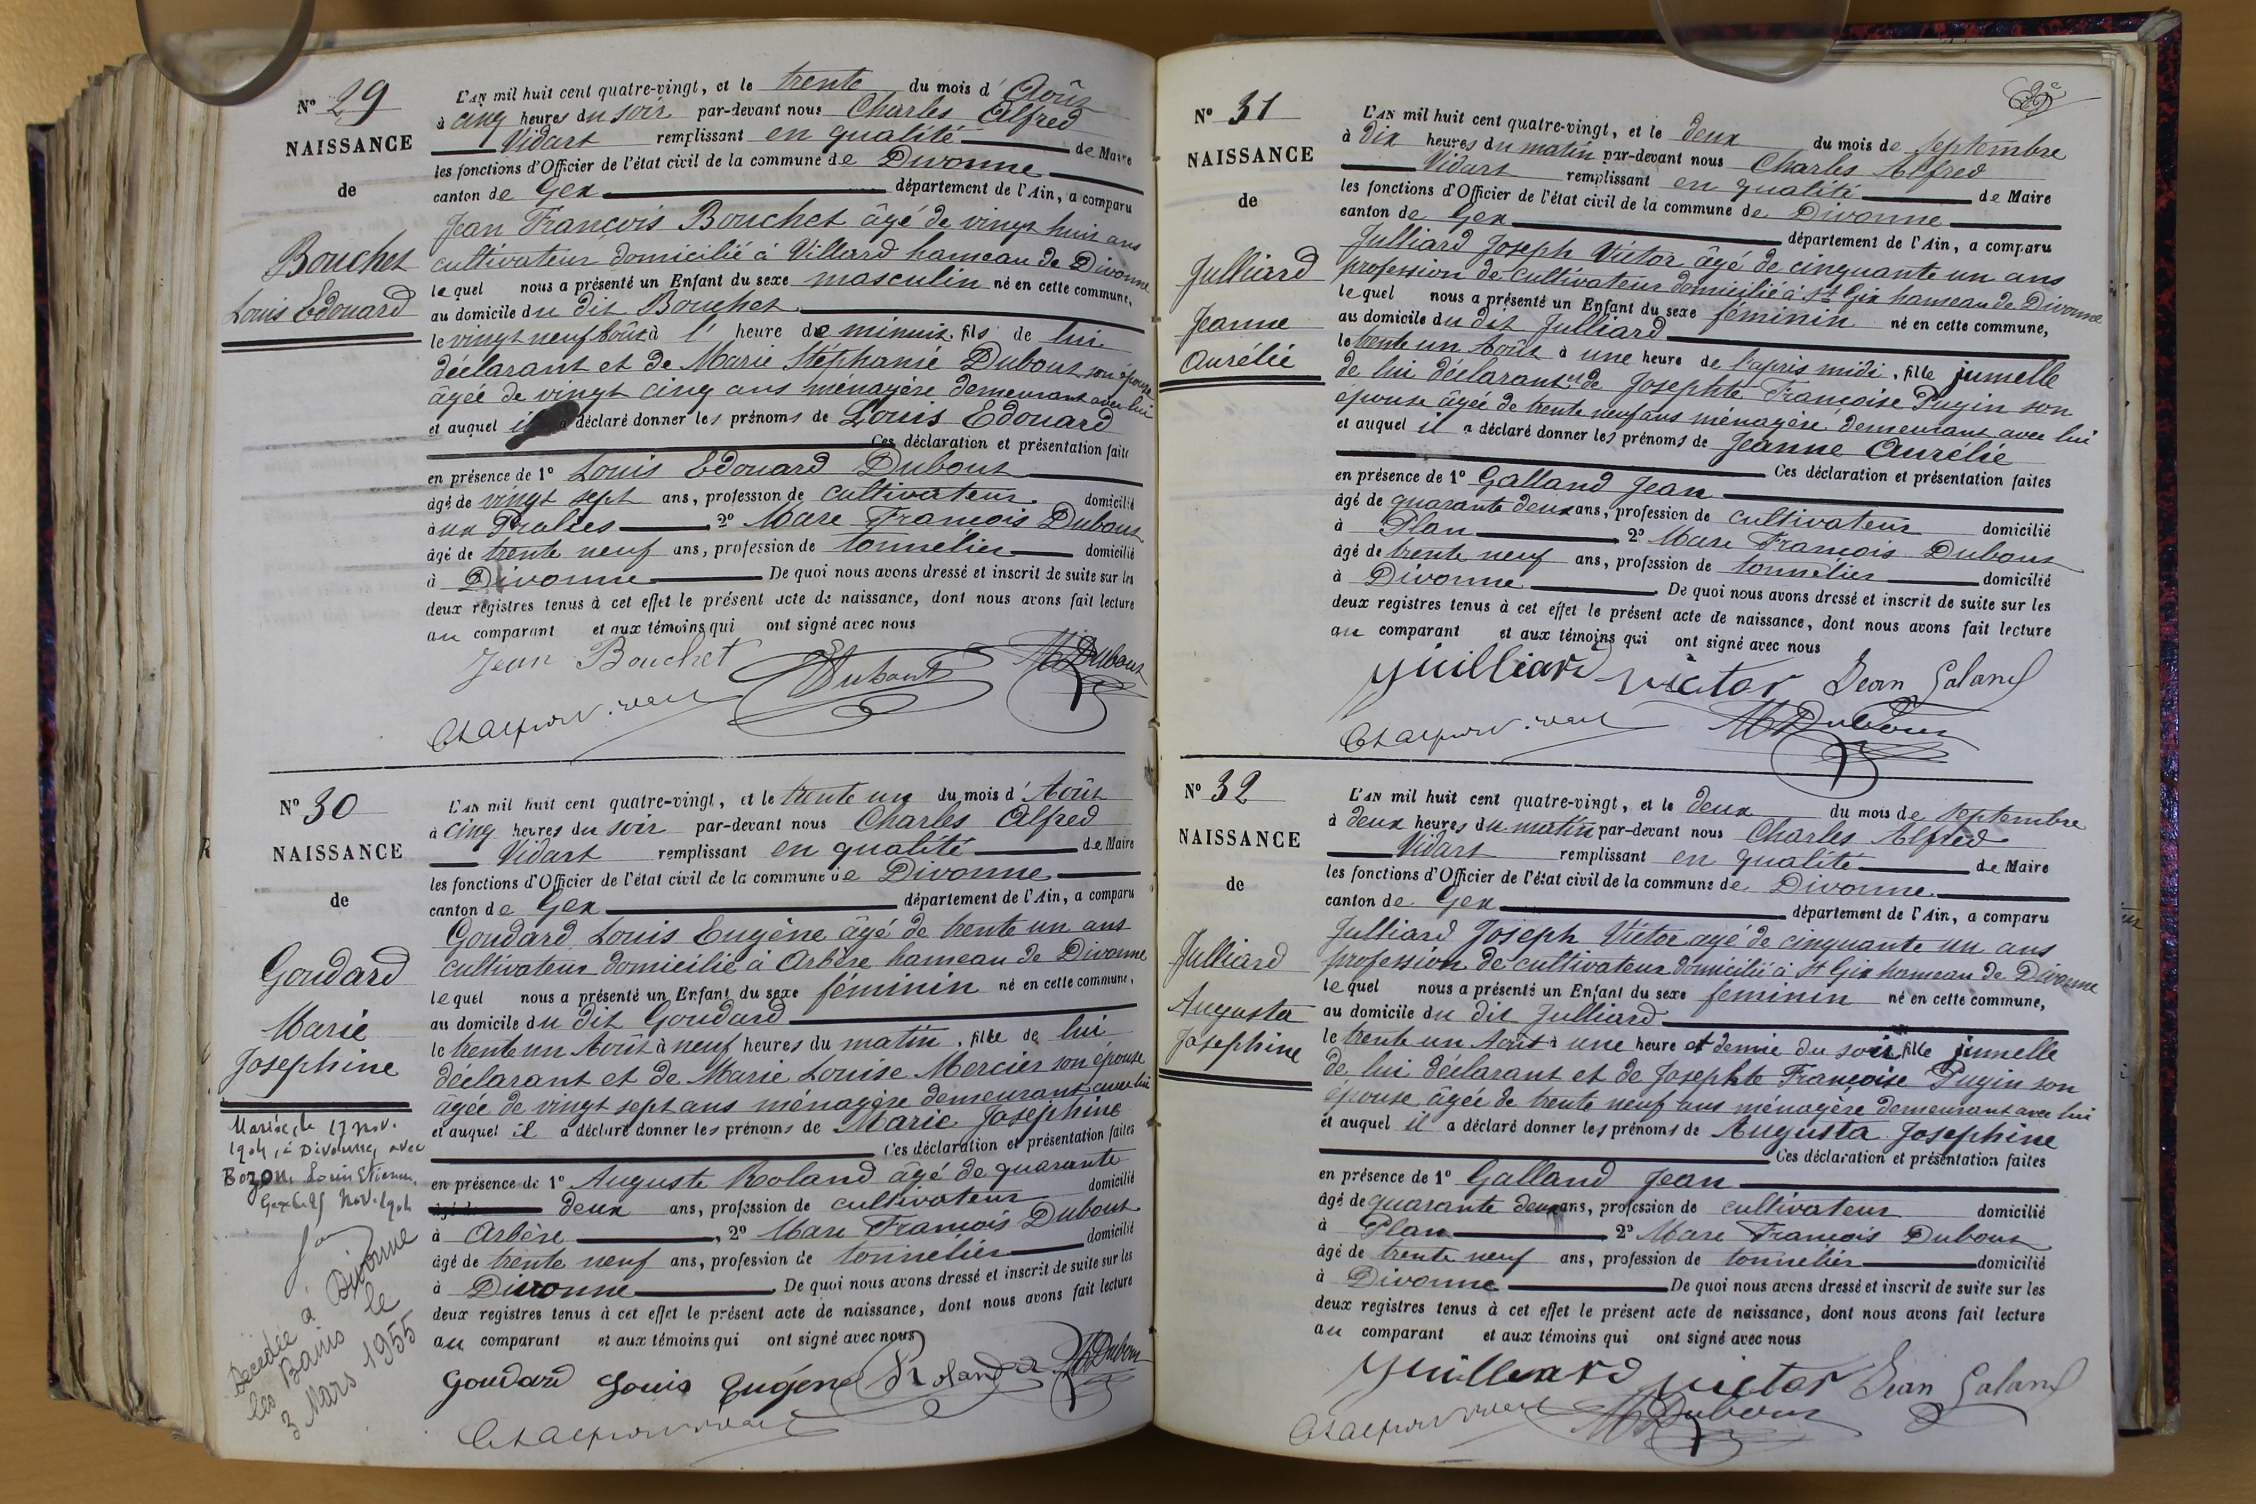 Nº 29
NAISSANCE
de
Bouchet
Louis Edouard
L'AN mil huit cent quatre-vingt, et le trente du mois d'Août
à cinq heures du soir par-devant nous Charles Alfred
Vidart remplissant en qualité de Maire
les fonctions d'Officier de l'état civil de la commune de Divonne
canton de Gex département de l'Ain, a comparu
Jean François Bouchet âgé de vingt huit ans
cultivateur domicilié à Villard hameau de Divonne
lequel nous a présenté un Enfant du sexe masculin né en cette commune,
au domicile du dit Bouchet
le vingt neuf Août à l' heure de minuit, fils de lui
déclarant et de Marie Stéphanie Dubout son épouse
âgée de vingt cinq ans ménagère demeurant avec lui
et auquel il a déclaré donner les prénoms de Louis Edouard
Ces déclaration et présentation faites
en présence de 1º Louis Edouard Dubout
âgé de vingt sept ans, profession de cultivateur domicilié
à 2º Marc François Dubout
âgé de trente neuf ans, profession de tonnelier domicilié
à Divonne De quoi nous avons dressé et inscrit de suite sur les
deux registres tenus à cet effet le présent acte de naissance, dont nous avons fait lecture
au comparant et aux témoins qui ont signé avec nous
Jean Bouchet Dubout M Dubout
Nº 30
NAISSANCE
de
Goudard
Marie
Josephine
Mariée, le 17 nov.
1904, à Divonne, avec
Bozon, Louis Etienne.
Gex le 25 Nov. 1904
Décédée à Divonne
les Bains le
3 Mars 1955
L'AN mil huit cent quatre-vingt, et le trente un du mois d'Août
à cinq heures du soir par-devant nous Charles Alfred
Vidart remplissant en qualité de Maire
les fonctions d'Officier de l'état civil de la commune de Divonne
canton de Gex département de l'Ain, a comparu
Goudard Louis Eugène âgé de trente un ans
cultivateur domicilié à Arbère hameau de Divonne
lequel nous a présenté un Enfant du sexe féminin né en cette commune,
au domicile du dit Goudard
le trente un Août à neuf heures du matin, fille de lui
déclarant et de Marie Louise Mercier son épouse
âgée de vingt sept ans ménagère demeurant avec lui
et auquel il a déclaré donner les prénoms de Marie Josephine
Ces déclaration et présentation faites
en présence de 1º Auguste Roland âgé de quarante
âgé de deux ans, profession de cultivateur domicilié
à Arbère, 2º Marc François Dubout
âgé de trente neuf ans, profession de tonnelier domicilié
à Divonne De quoi nous avons dressé et inscrit de suite sur les
deux registres tenus à cet effet le présent acte de naissance, dont nous avons fait lecture
au comparant et aux témoins qui ont signé avec nous
Goudard Louis Eugène Roland A M Dubout
Nº 31
NAISSANCE
de
Julliard
Jeanne
Aurélie
L'AN mil huit cent quatre-vingt, et le deux du mois de Septembre
à dix heures du matin par-devant nous Charles Alfred
Vidart remplissant en qualité de Maire
les fonctions d'Officier de l'état civil de la commune de Divonne
canton de Gex département de l'Ain, a comparu
Julliard Joseph Victor âgé de cinquante un ans
profession de cultivateur domicilié à St Gix hameau de Divonne
lequel nous a présenté un Enfant du sexe féminin né en cette commune,
au domicile du dit Julliard
le trente un Août à une heure de l'après midi, fille jumelle
de lui déclarant et de Josephte Françoise Pugin son
épouse âgée de trente neuf ans ménagère demeurant avec lui
et auquel il a déclaré donner les prénoms de Jeanne Aurélie
Ces déclaration et présentation faites
en présence de 1º Galland Jean
âgé de quarante deux ans, profession de cultivateur domicilié
à Plan 2º Marc François Dubout
âgé de trente neuf ans, profession de tonnelier domicilié
à Divonne De quoi nous avons dressé et inscrit de suite sur les
deux registres tenus à cet effet le présent acte de naissance, dont nous avons fait lecture
au comparant et aux témoins qui ont signé avec nous
Juilliard victor Jean Galand
M Dubout
Nº 32
NAISSANCE
de
Julliard
Augusta
Josephine
L'AN mil huit cent quatre-vingt, et le deux du mois de Septembre
à deux heures du matin par-devant nous Charles Alfred
Vidart remplissant en qualité de Maire
les fonctions d'Officier de l'état civil de la commune de Divonne
canton de Gex département de l'Ain, a comparu
Julliard Joseph Victor agé de cinquante un ans
profession de cultivateur domicilié à St Gix hameau de Divonne
lequel nous a présenté un Enfant du sexe féminin né en cette commune,
au domicile du dit Julliard
le trente un Août à une heure et demie du soir, fille jumelle
de lui déclarant et de Josephte Françoise Pugin son
épouse âgée de trente neuf ans ménagère demeurant avec lui
et auquel il a déclaré donner les prénoms de Augusta Josephine
Ces déclaration et présentation faites
en présence de 1º Galland Jean
âgé de quarante deux ans, profession de cultivateur domicilié
à Plan 2º Marc François Dubout
âgé de trente neuf ans, profession de tonnelier domicilié
à Divonne De quoi nous avons dressé et inscrit de suite sur les
deux registres tenus à cet effet le présent acte de naissance, dont nous avons fait lecture
au comparant et aux témoins qui ont signé avec nous
Juilliard victor Jean Galand
M Dubout